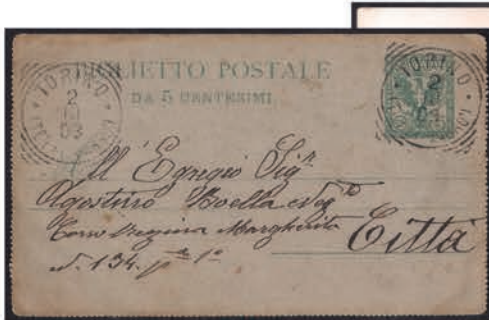 BIGLIETTO POSTALE
DA 5 CENTESIMI
TORINO
2
03
TORINO
2
03
All' Egregio Sigr
Agostino Boella e
Corso Regina Margherita
N. 134. p 1o
Città